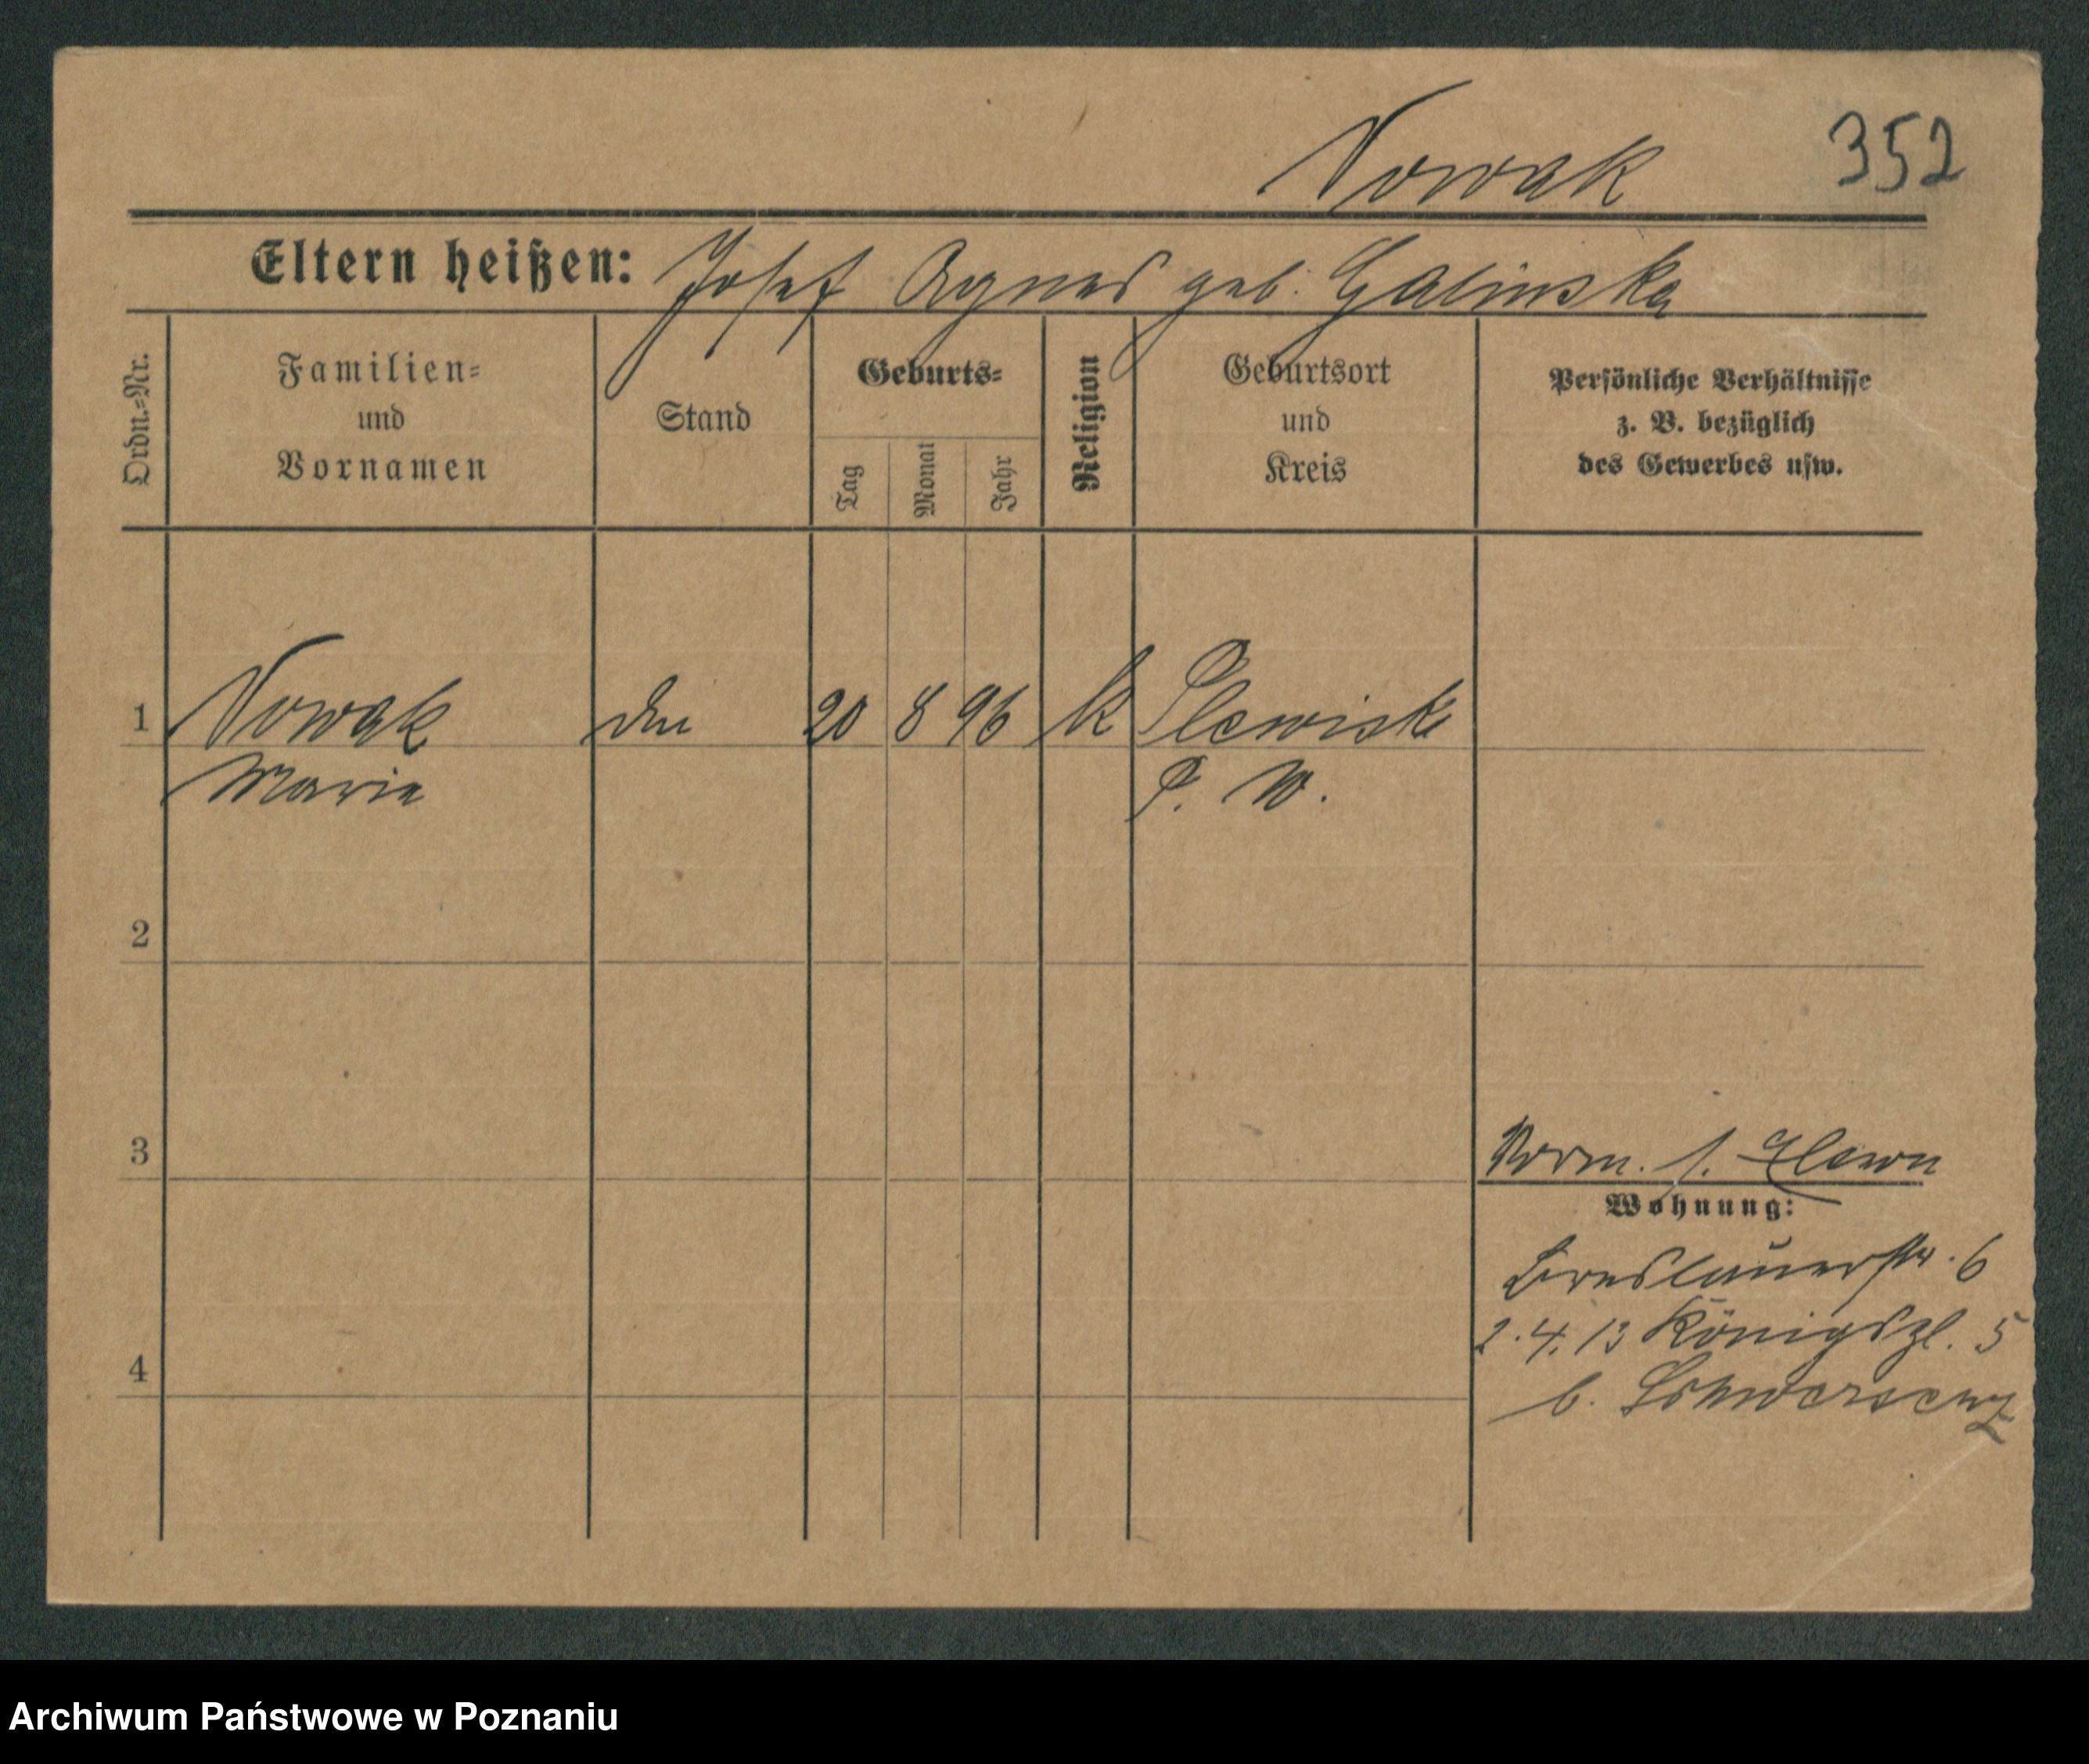 Nowak 352
Eltern heißen: Josef Agnes geb. Galinska
Ordn.-Nr.
Familien-
und
Vornamen
Stand
Geburts-
Tag
Monat
Jahr
Religion
Geburtsort
und
Kreis
Persönliche Verhältnisse
z. B. bezüglich
des Gewerbes usw.
1 Nowak 20 8 96 k Plewisk
Marie P. W.
2
3
Vorm. s.
Wohnung:
Breslauerstr. 6
2.4.13 Königspl. 5
b. Schwersenz
4
Archiwum Państwowe w Poznaniu